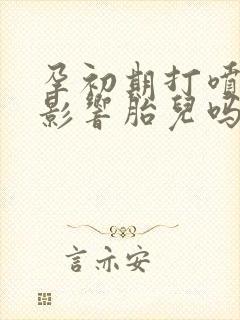 孕初期打噴
影響胎兒嗎
言亦安